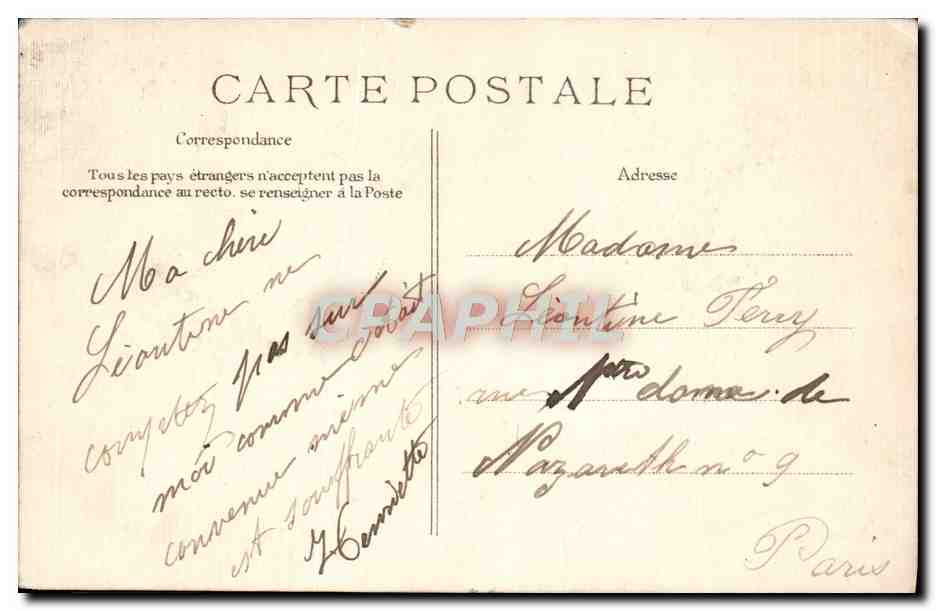 CARTE POSTALE
Correspondance
Tous les pays étrangers n'acceptent pas la
correspondance au recto. se renseigner à la Poste
Ma chère
Léontine ne
comptez pas sur
moi comme c'était
convenue mémé
est souffrante
Henriette
Adresse
Madame
Léontine Terry
rue Ntre dame de
Nazareth n° 9
Paris
CPAPHIL